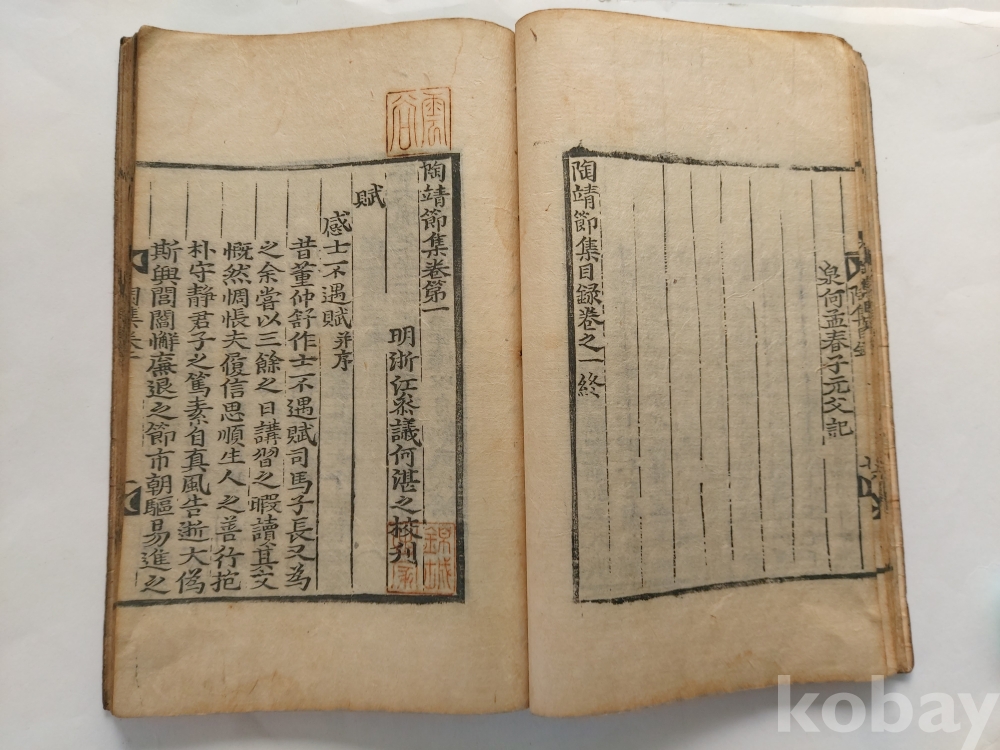 泉何孟春子元父記
陶靖節集目録卷之一終
陶靖節集卷第一
明浙江叅議何湛之校刋
賦
感士不遇賦并序
昔董仲舒作士不遇賦司馬子長又為
之余嘗以三餘之日講習之暇讀其文
慨然惆悵夫履信思順生人之善行抱
朴守靜君子之篤素自真風告逝大偽
斯興閭閻懈廉退之節市朝驅易進之
錦城
kobay